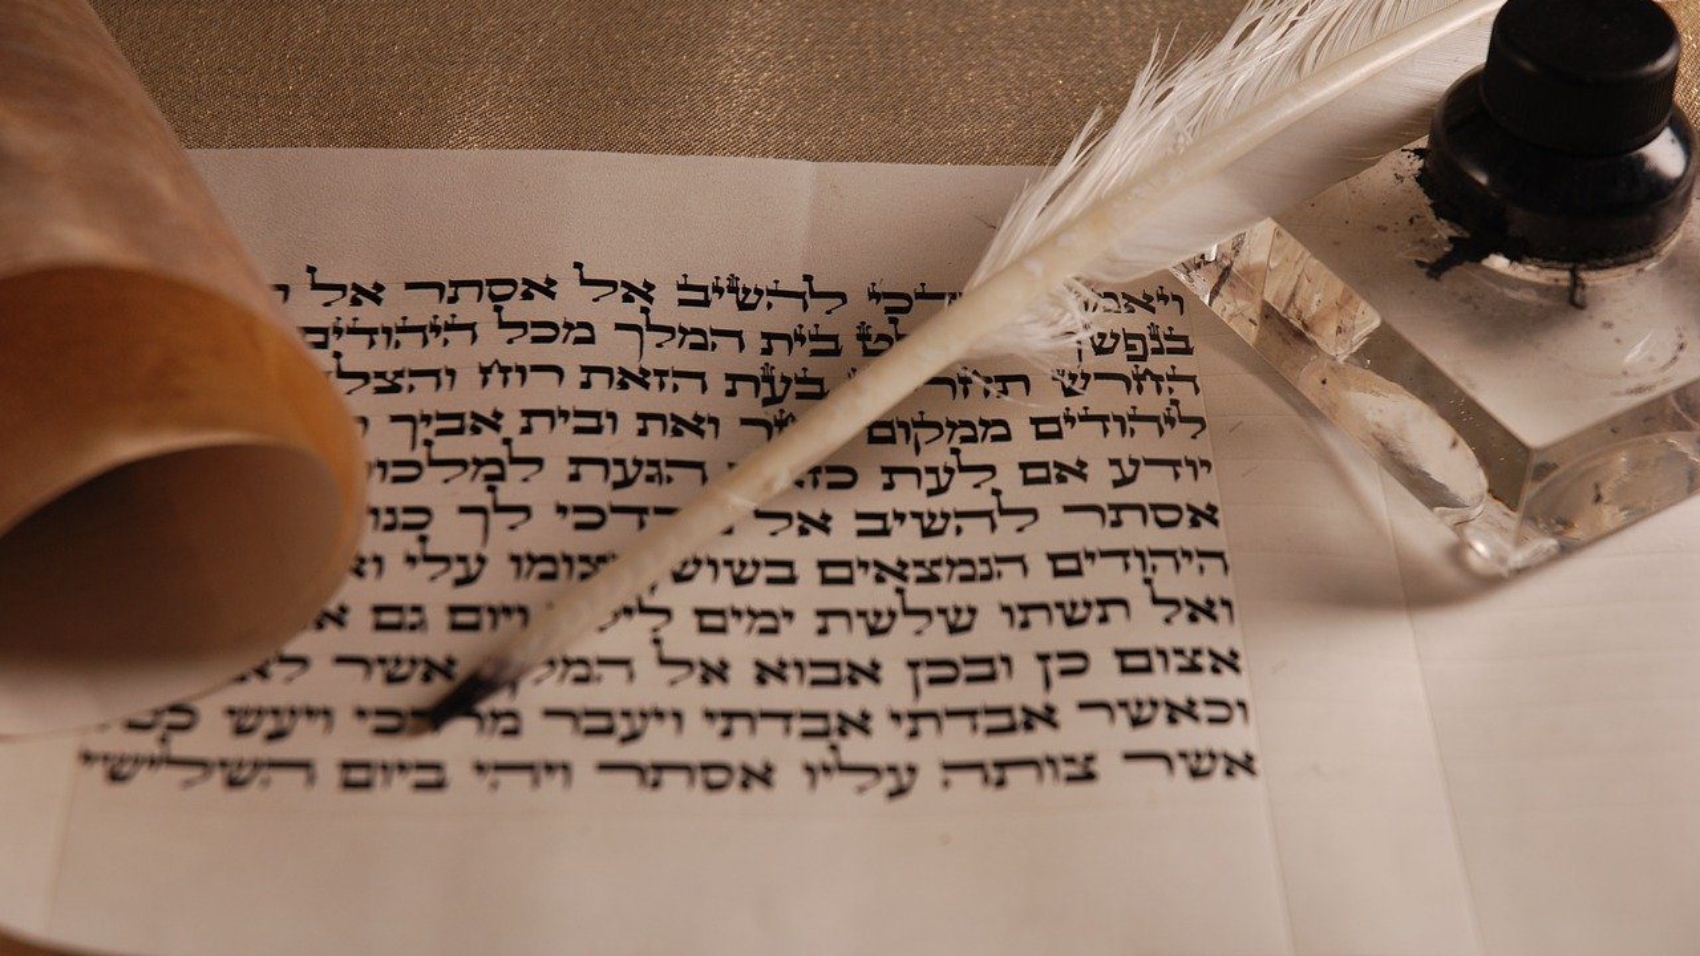 להשיב אל אסתר אל
בית המלך מכל היהודים
החרש בעת הזאת רוח והצלה
ליהודים ממקום ואת ובית אביך
יודע אם לעת הגעת למלכות
אסתר להשיב אל לך כנוס
היהודים הנמצאים עלי
ואל תשתו שלשת ימים ויום גם
אצום כן ובכן אבוא אל אשר
וכאשר אבדתי אבדתי ויעבר ויעש
אשר צותה עליו אסתר ויהי ביום השלישי